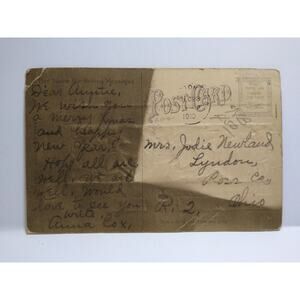 Dear Auntie,
We wish you
a merry Xmas
and Happy
New Year,
Hope all are
well, we are
well, would
love to see you
write,
Anna Cox,
POST CARD
1910
Mrs. Jodie Newland
Lyndon,
Ross Co
R. 2, Ohio